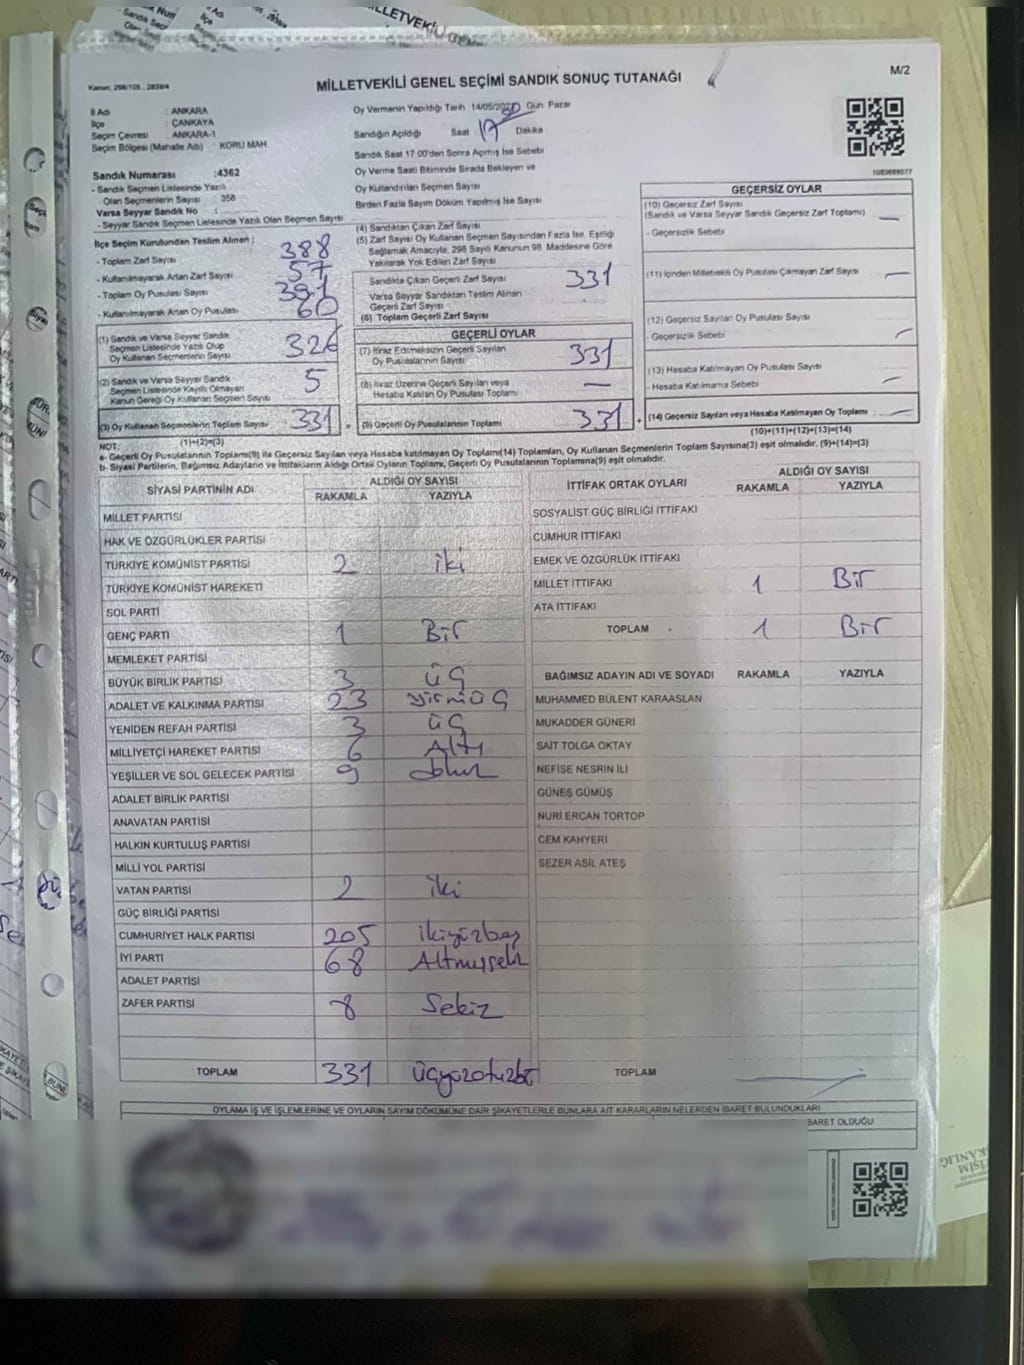 MİLLETVEKİLİ GENEL SEÇİMİ SANDIK SONUÇ TUTANAĞI
M/2
Kanun, 298/105 , 2839/4
İl Adı : ANKARA
İlçe : ÇANKAYA
Seçim Çevresi : ANKARA-1
Seçim Bölgesi (Mahalle Adı) : KORU MAH.
Sandık Numarası :4362
- Sandık Seçmen Listesinde Yazılı
Olan Seçmenlerin Sayısı : 358
Varsa Seyyar Sandık No :
- Seyyar Sandık Seçmen Listesinde Yazılı Olan Seçmen Sayısı
Oy Vermenin Yapıldığı Tarih 14/05/2023 Gün Pazar
Sandığın Açıldığı Saat 17 Dakika
Sandık Saat 17:00'den Sonra Açılmış İse Sebebi
Oy Verme Saati Bitiminde Sırada Bekleyen ve
Oy Kullandırılan Seçmen Sayısı
Birden Fazla Sayım Döküm Yapılmış İse Sayısı
İlçe Seçim Kurulundan Teslim Alınan ;
- Toplam Zarf Sayısı 388
- Kullanılmayarak Artan Zarf Sayısı 57
- Toplam Oy Pusulası Sayısı 391
- Kullanılmayarak Artan Oy Pusulası 60
(1) Sandık ve Varsa Seyyar Sandık
Seçmen Listesinde Yazılı Olup
Oy Kullanan Seçmenlerin Sayısı 326
(2) Sandık ve Varsa Seyyar Sandık
Seçmen Listesinde Kayıtlı Olmayan
Kanun Gereği Oy Kullanan Seçmen Sayısı 5
(3) Oy Kullanan Seçmenlerin Toplam Sayısı 331
(1)+(2)=(3)
(4) Sandıktan Çıkan Zarf Sayısı
(5) Zarf Sayısı Oy Kullanan Seçmen Sayısından Fazla İse, Eşitliği
Sağlamak Amacıyla, 298 Sayılı Kanunun 98. Maddesine Göre
Yakılarak Yok Edilen Zarf Sayısı
Sandıkta Çıkan Geçerli Zarf Sayısı 331
Varsa Seyyar Sandıktan Teslim Alınan
Geçerli Zarf Sayısı
(6) Toplam Geçerli Zarf Sayısı
GEÇERLİ OYLAR
(7) İtiraz Edilmeksizin Geçerli Sayılan
Oy Pusulalarının Sayısı 331
(8) İtiraz Üzerine Geçerli Sayılan veya
Hesaba Katılan Oy Pusulası Toplamı —
(9) Geçerli Oy Pusulalarının Toplamı 331
GEÇERSİZ OYLAR
(10) Geçersiz Zarf Sayısı
(Sandık ve Varsa Seyyar Sandık Geçersiz Zarf Toplamı) —
- Geçersizlik Sebebi
(11) İçinden Milletvekili Oy Pusulası Çıkmayan Zarf Sayısı —
(12) Geçersiz Sayılan Oy Pusulası Sayısı
- Geçersizlik Sebebi —
(13) Hesaba Katılmayan Oy Pusulası Sayısı
- Hesaba Katılmama Sebebi —
(14) Geçersiz Sayılan veya Hesaba Katılmayan Oy Toplamı —
(10)+(11)+(12)+(13)=(14)
NOT:
a- Geçerli Oy Pusulalarının Toplamı(9) ile Geçersiz Sayılan veya Hesaba katılmayan Oy Toplamı(14) Toplamları, Oy Kullanan Seçmenlerin Toplam Sayısına(3) eşit olmalıdır. (9)+(14)=(3)
b- Siyasi Partilerin, Bağımsız Adayların ve İttifakların Aldığı Ortak Oyların Toplamı, Geçerli Oy Pusulalarının Toplamına(9) eşit olmalıdır.
SİYASİ PARTİNİN ADI ALDIĞI OY SAYISI
RAKAMLA YAZIYLA
MİLLET PARTİSİ
HAK VE ÖZGÜRLÜKLER PARTİSİ
TÜRKİYE KOMÜNİST PARTİSİ 2 iki
TÜRKİYE KOMÜNİST HAREKETİ
SOL PARTİ
GENÇ PARTİ 1 Bir
MEMLEKET PARTİSİ
BÜYÜK BİRLİK PARTİSİ 3 üç
ADALET VE KALKINMA PARTİSİ 23 yirmiüç
YENİDEN REFAH PARTİSİ 3 üç
MİLLİYETÇİ HAREKET PARTİSİ 6 Altı
YEŞİLLER VE SOL GELECEK PARTİSİ 9 dokuz
ADALET BİRLİK PARTİSİ
ANAVATAN PARTİSİ
HALKIN KURTULUŞ PARTİSİ
MİLLİ YOL PARTİSİ
VATAN PARTİSİ 2 iki
GÜÇ BİRLİĞİ PARTİSİ
CUMHURİYET HALK PARTİSİ 205 ikiyüzbeş
İYİ PARTİ 68 Altmışsekiz
ADALET PARTİSİ
ZAFER PARTİSİ 8 Sekiz
TOPLAM 331 üçyüzotuzbir
İTTİFAK ORTAK OYLARI ALDIĞI OY SAYISI
RAKAMLA YAZIYLA
SOSYALİST GÜÇ BİRLİĞİ İTTİFAKI
CUMHUR İTTİFAKI
EMEK VE ÖZGÜRLÜK İTTİFAKI
MİLLET İTTİFAKI 1 Bir
ATA İTTİFAKI
TOPLAM 1 Bir
BAĞIMSIZ ADAYIN ADI VE SOYADI RAKAMLA YAZIYLA
MUHAMMED BÜLENT KARAASLAN
MUKADDER GÜNERİ
SAİT TOLGA OKTAY
NEFİSE NESRİN İLİ
GÜNEŞ GÜMÜŞ
NURİ ERCAN TORTOP
CEM KAHYERİ
SEZER ASİL ATEŞ
TOPLAM
OYLAMA İŞ VE İŞLEMLERİNE VE OYLARIN SAYIM DÖKÜMÜNE DAİR ŞİKAYETLERLE BUNLARA AİT KARARLARIN NELERDEN İBARET BULUNDUKLARI
BARET OLDUĞU